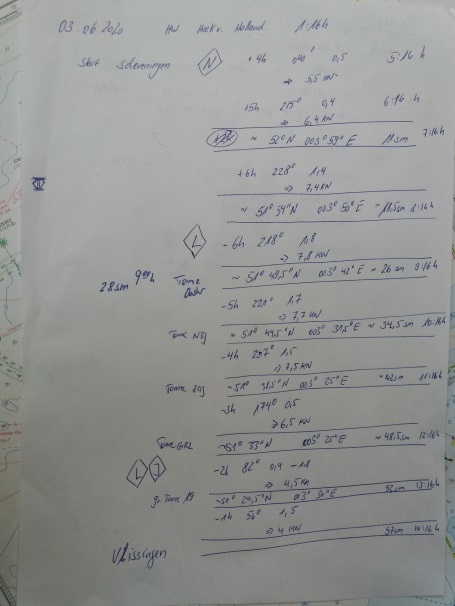 03.06.2020 HW Hoek v. Holland 1:16h
Start Scheveningen N +4h 040° 0,5 5:16 h
⇒ 5,5 kn
+5h 215° 0,4 6:16 h
⇒ 6,4 KN
~ 52°N 003° 59' E 11sm 7:16h
+6h 228° 1,4
⇒ 7,4 KN
~ 51° 54'N 003° 50' E ~18,5sm 8:16h
L -6h 218° 1,8
⇒ 7,8 KN
28sm 9:00h Tonne ~ 51° 49,5'N 003° 42' E ~ 26 sm 9:16h
-5h 221° 1,7
⇒ 7,7 KN
Tonne ~ 51° 44,5'N 003° 31,5'E ~ 34,5 sm 10:16h
-4h 207° 1,5
⇒ 7,5 KN
Tonne ~51° 38,5'N 003° 25' E ~42sm 11:16h
-3h 174° 0,5
⇒ 6,5 KN
Tonne ~51° 33'N 003° 25' E ~ 48,5sm 12:16h
L J -2h 82° 0,4 - 1,8
⇒ 4,5 kn
Tonne 19 ~51° 29,5'N 003° 30' E 53sm 13:16h
-1h 56° 1,5
⇒ 4 KN 57sm 14:16h
Vlissingen